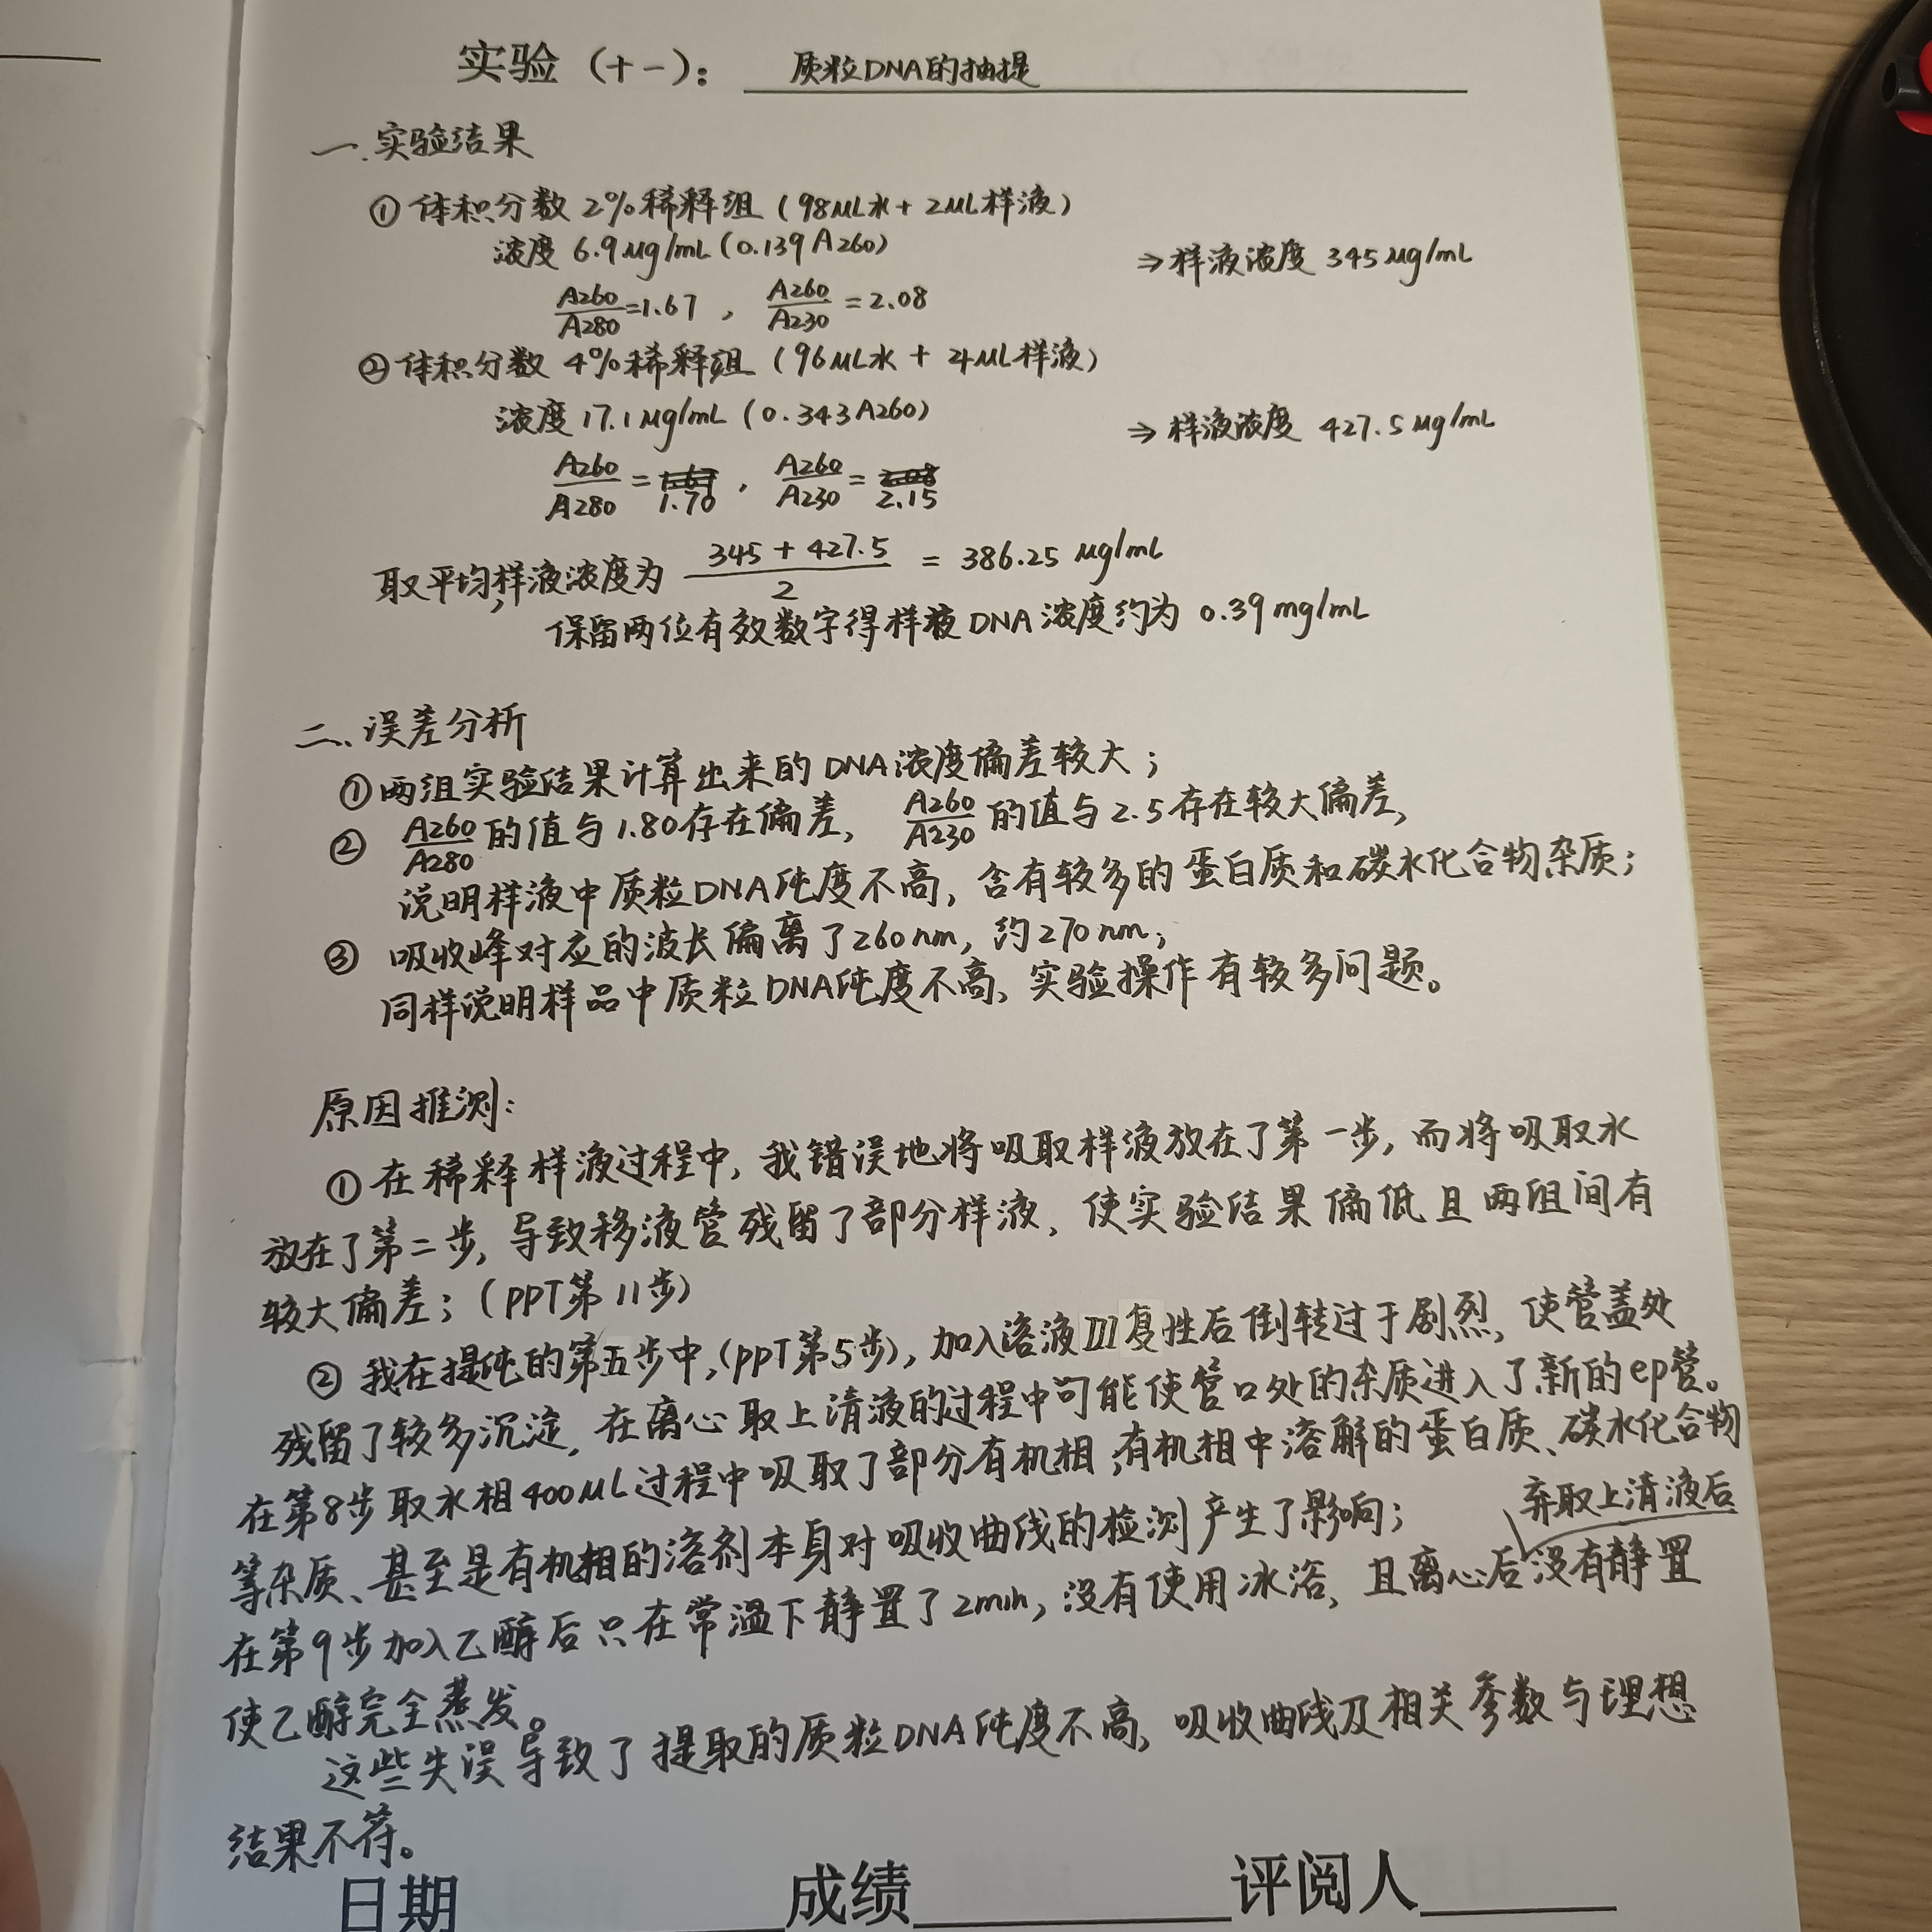 实验（十一）： 质粒DNA的抽提
一.实验结果
① 体积分数 2%稀释组（98μL水 + 2μL样液）
浓度 6.9 μg/mL (0.139 A260) ⇒ 样液浓度 345 μg/mL
A260/A280 = 1.67 ， A260/A230 = 2.08
② 体积分数 4%稀释组（96μL水 + 4μL样液）
浓度 17.1 μg/mL (0.343 A260) ⇒ 样液浓度 427.5 μg/mL
A260/A280 = 1.70 ， A260/A230 = 2.15
取平均，样液浓度为 (345 + 427.5)/2 = 386.25 μg/mL
保留两位有效数字得样液DNA浓度约为 0.39 mg/mL
二、误差分析
①两组实验结果计算出来的DNA浓度偏差较大；
② A260/A280 的值与1.80存在偏差， A260/A230 的值与2.5存在较大偏差，
说明样液中质粒DNA纯度不高，含有较多的蛋白质和碳水化合物杂质；
③ 吸收峰对应的波长偏离了260nm，约270nm；
同样说明样品中质粒DNA纯度不高、实验操作有较多问题。
原因推测：
①在稀释样液过程中，我错误地将吸取样液放在了第一步，而将吸取水
放在了第二步，导致移液管残留了部分样液，使实验结果偏低且两组间有
较大偏差；（PPT第11步）
② 我在提纯的第五步中，(PPT第5步)，加入溶液III复性后倒转过于剧烈，使管盖处
残留了较多沉淀，在离心取上清液的过程中可能使管口处的杂质进入了新的ep管。
在第8步取水相400μL过程中吸取了部分有机相，有机相中溶解的蛋白质、碳水化合物
等杂质、甚至是有机相的溶剂本身对吸收曲线的检测产生了影响；
弃取上清液后
在第9步加入乙醇后只在常温下静置了2min，没有使用冰浴，且离心后没有静置
使乙醇完全蒸发。
这些失误导致了提取的质粒DNA纯度不高，吸收曲线及相关参数与理想
结果不符。
日期 成绩 评阅人